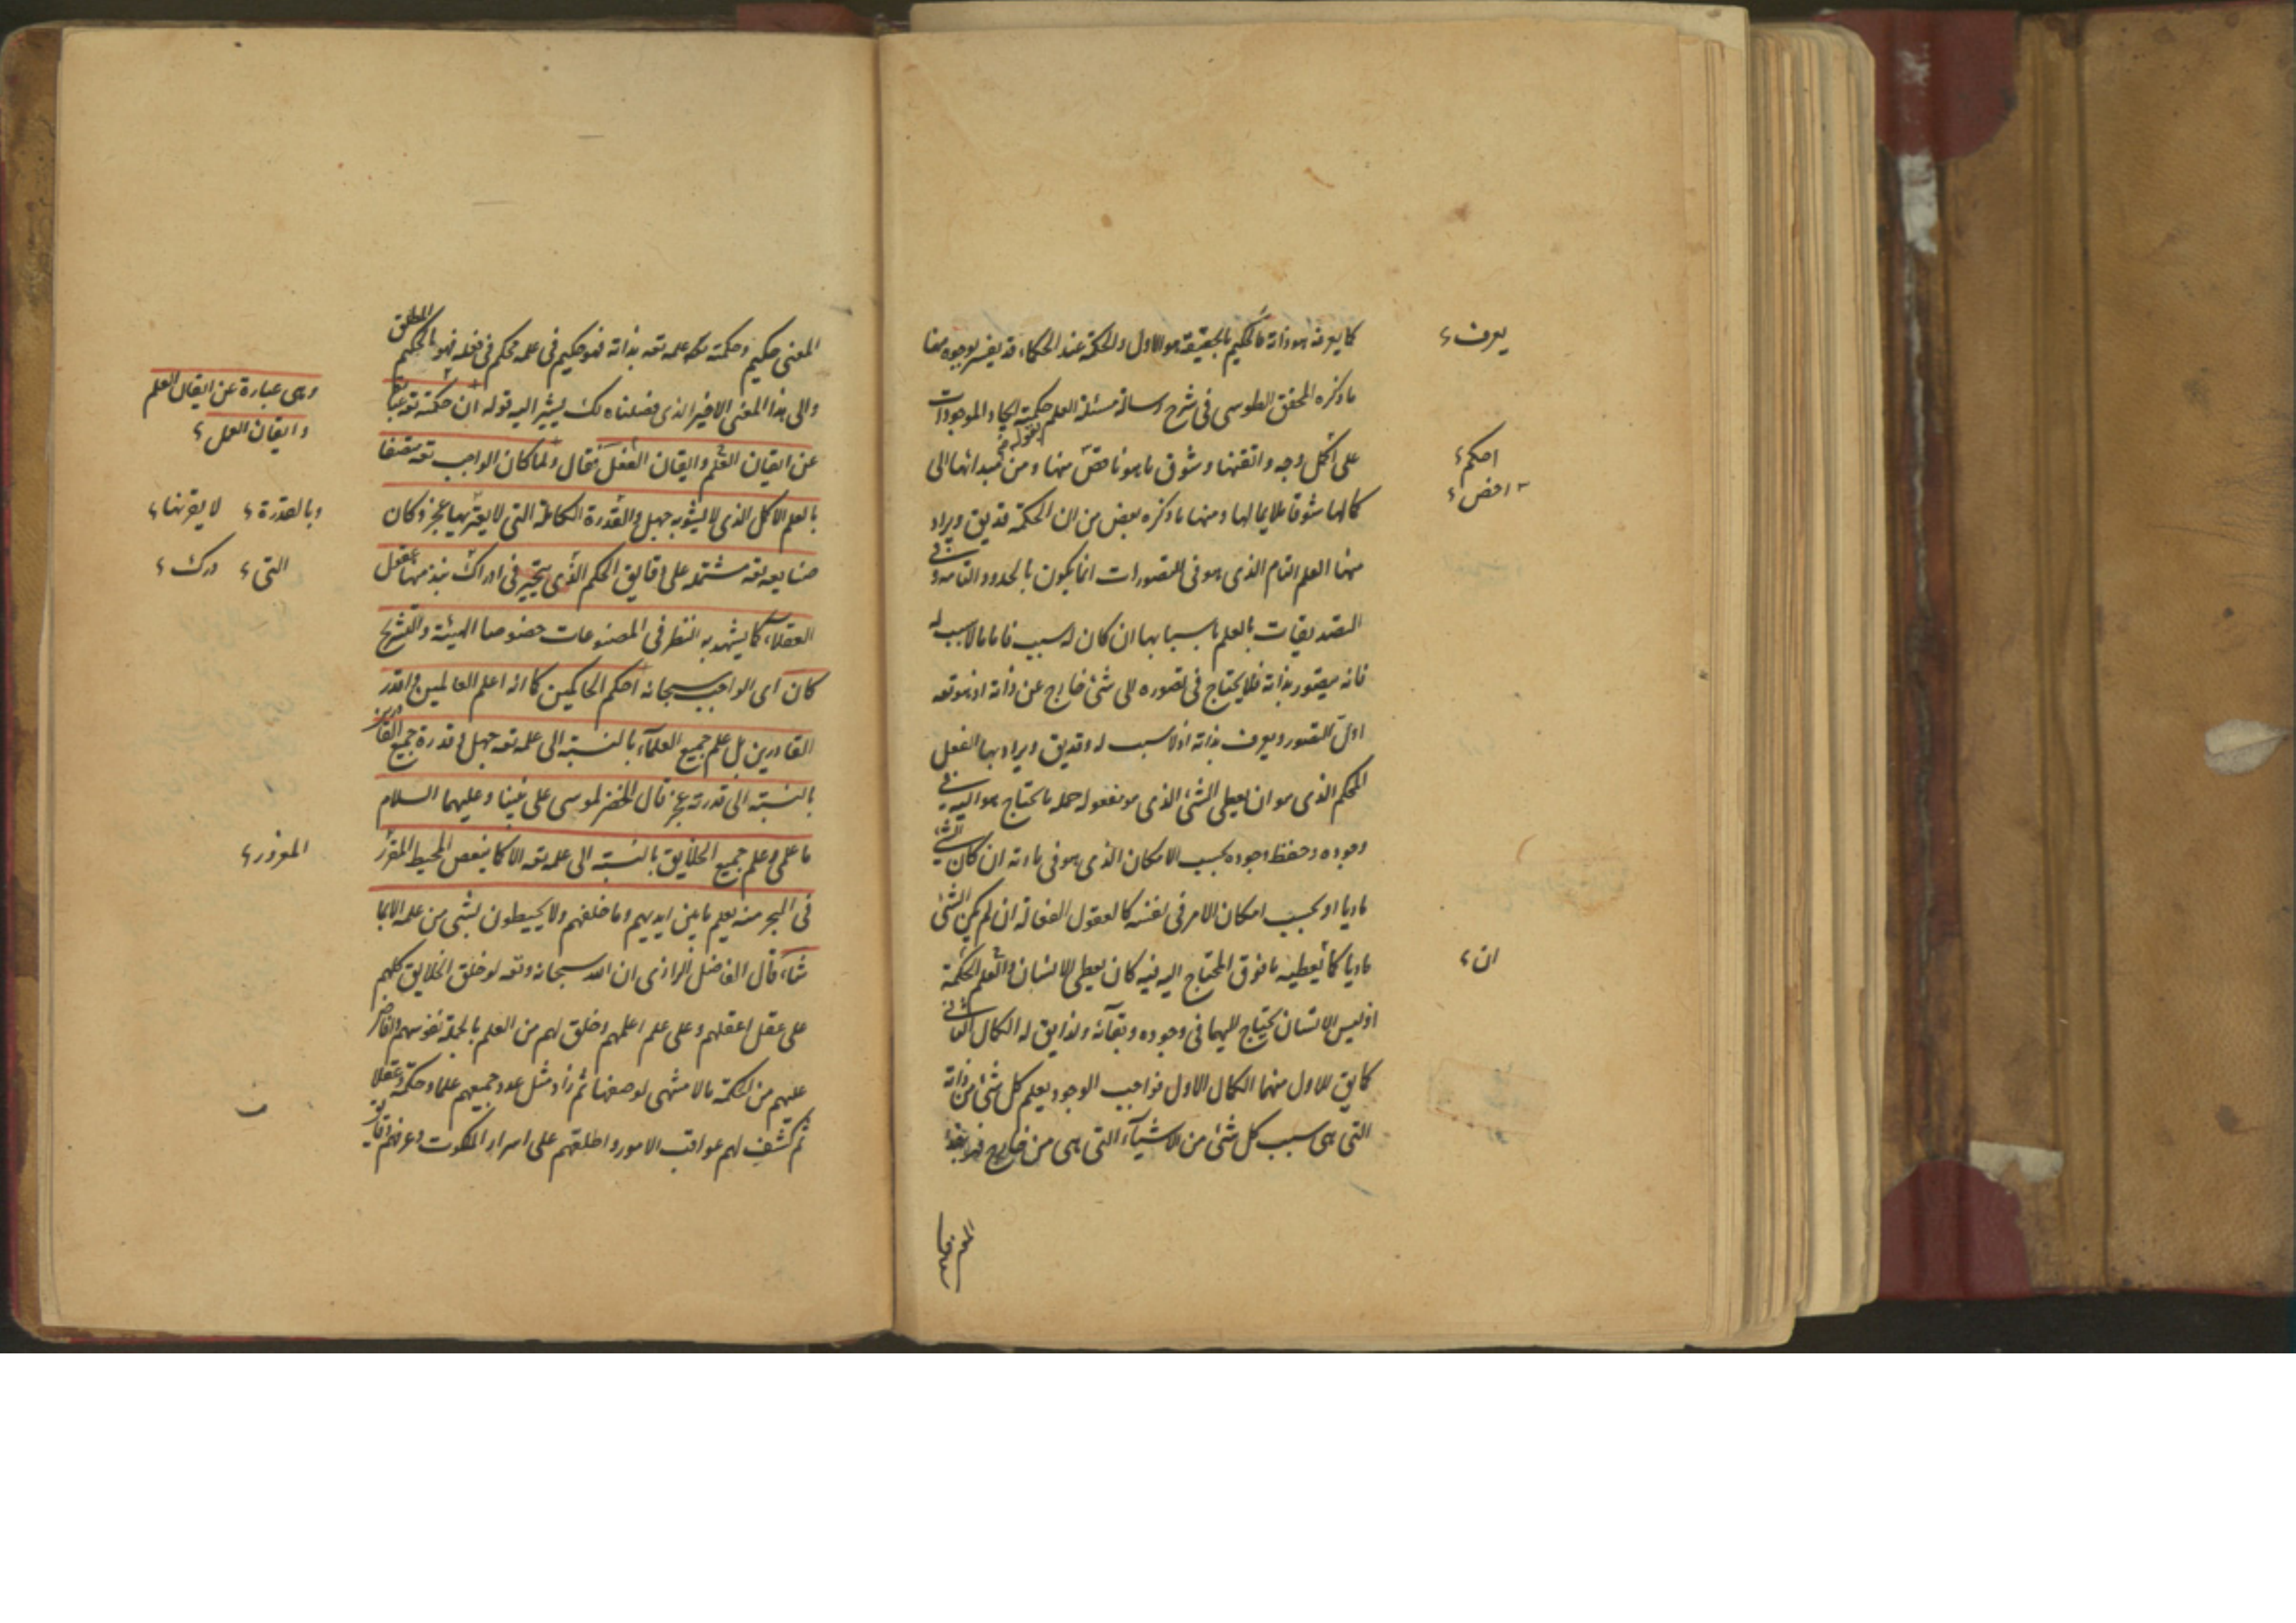 كما يعرفه هو ذاته فالحكيم بالحقيقة هو الاول والحكمة عند الحكماء قد يفسر بوجوه منها
ما ذكره المحقق الطوسى فى شرح رسالة مسئلة العلم حكمته ايجاد الموجودات
على اكمل وجه واتقنها وشوق ما هو ناقص منها ومن مبدائها الى
كمالها شوقا ملايما لها ومنها ما ذكره بعض من ان الحكمة قد يق ويراد
منها العلم التام الذى هو فى التصورات انما يكون بالحدود التامه وفى
التصديقات بالعلم باسبابها ان كان له سبب فاما ما لا سبب له
فانه يتصور بذاته فلا يحتاج فى تصوره الى شئ خارج عن ذاته اذ هو تعه
اولى التصور ويعرف بذاته اذ لا سبب له وقد يق ويراد بها الفعل
المحكم الذى هو ان يعطى الشئ الذى هو مفعوله جملة ما يحتاج هو اليه فى
وجوده وحفظ وجوده بحسب الامكان الذى هو فى مادته ان كان الشئ
ماديا او بحسب امكان الامر فى نفسه كالعقول الفعالة ان لم يكن الشئ
ماديا كما يعطيه ما فوق المحتاج اليه فيه كان يعطى الانسان والعلم الحكمة
اذ ليس الانسان يحتاج اليهما فى وجوده وبقآئه ولذا يق له الكمال الثانى
كما يق للاول منهما الكمال الاول فواجب الوجود يعلم كل شئ من ذاته
التى هى سبب كل شئ من الاشيآء التى هى من خارج فهو بهذا
المعنى حكيم
يعرف
احكم
ان
المعنى حكيم وحكمته علمه تعه بذاته فهو حكيم فى علمه محكم فى فعله فهو الحكيم المطلق
والى هذا المعنى الاخير الذى فصلناه لك يشير اليه قوله ان حكمته تعه عبارة
عن ايقان العلم وايقان الفعل فقال ولما كان الواجب تعه متصفا
بالعلم الاكمل الذى لا يشوبه جهل والقدرة الكاملة التى لا يعتريها عجز وكان
صنايعه تعه مشتملة على دقايق الحكم الذى يتحير فى ادراك نبذ منها عقول
العقلآء كما يشهد به النظر فى المصنوعات خصوصا الهيئة والتشريح
كان اى الواجب سبحانه احكم الحاكمين كما انه اعلم العالمين واقدر
القادرين بل علم جميع العلمآء بالنسبته الى علمه تعه جهل وقدرة جميع القادرين
بالنسبته الى قدرته عجز قال الخضر لموسى على نبينا وعليهما السلام
ما علمى وعلم جميع الخلايق بالنسبته الى علمه تعه الا كما ينغمس المخيط المفرز
فى البحر منه يعلم ما بين ايديهم وما خلفهم ولا يحيطون بشئ من علمه الا بما
شاء قال الفاضل الرازى ان الله سبحانه وتعه لو خلق الخلايق كلهم
على عقل اعقلهم وعلى علم اعلمهم وخلق لهم من العلم بالجملة نفوسهم وافاض
عليهم من الحكمة ما لا منتهى لوصفها ثم زاد مثل عدد جميعهم علما وحكمة وعقلا
ثم كشف لهم عواقب الامور واطلعهم على اسرار الملكوت وعرفهم دقايق
وهى عبارة عن ايقان العلم
وايقان العمل
وبالقدرة لا يعتريها
التى درك